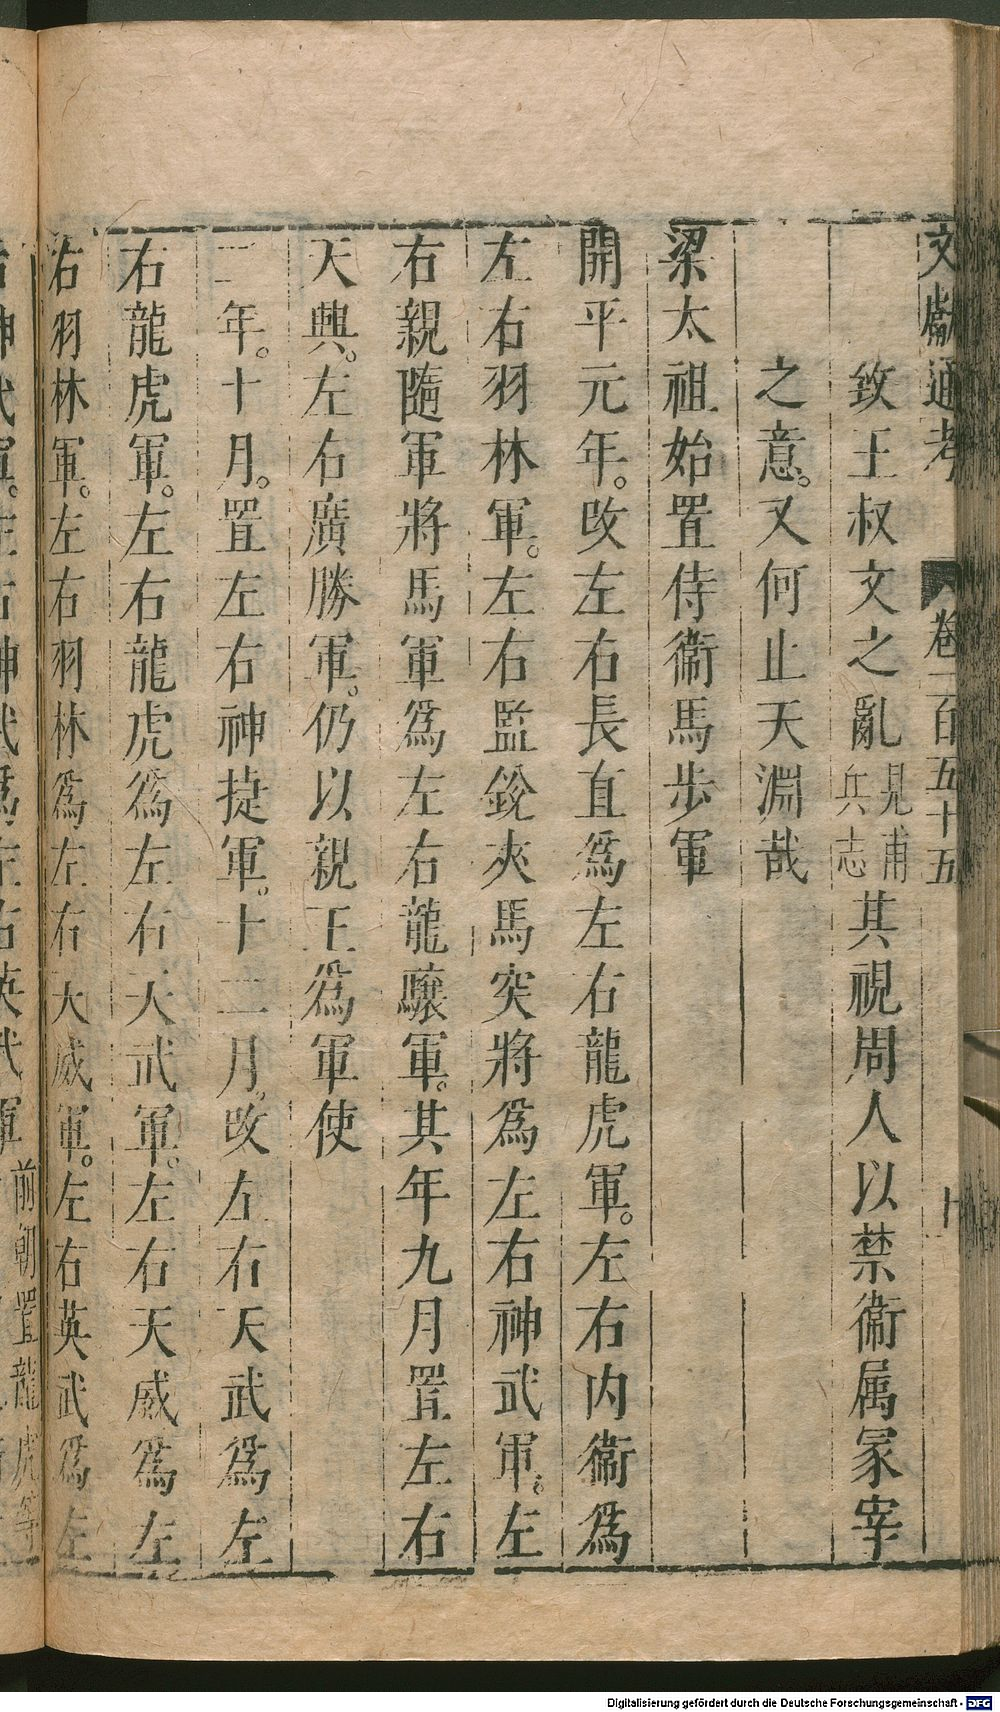 文獻通考 卷一百五十五 十
致王叔文之亂見兵甫志其視周人以禁衞属冢宰
之意。又何止天淵哉
梁太祖始置侍衞馬步軍
開平元年。改左右長直爲左右龍虎軍。左右内衞爲
左右羽林軍。左右監銳夾馬突將爲左右神武軍。左
右親隨軍將馬軍爲左右龍驤軍。其年九月置左右
天興。左右廣勝軍。仍以親王爲軍使
二年。十月。置左右神捷軍。十二月。改左右天武爲左
右龍虎軍。左右龍虎爲左右天武軍。左右天威爲左
右羽林軍。左右羽林爲左右天威軍。左右英武爲左
右神武軍。左右神武爲左右英武軍前朝置龍虎等
Digitalisierung gefördert durch die Deutsche Forschungsgemeinschaft - DFG